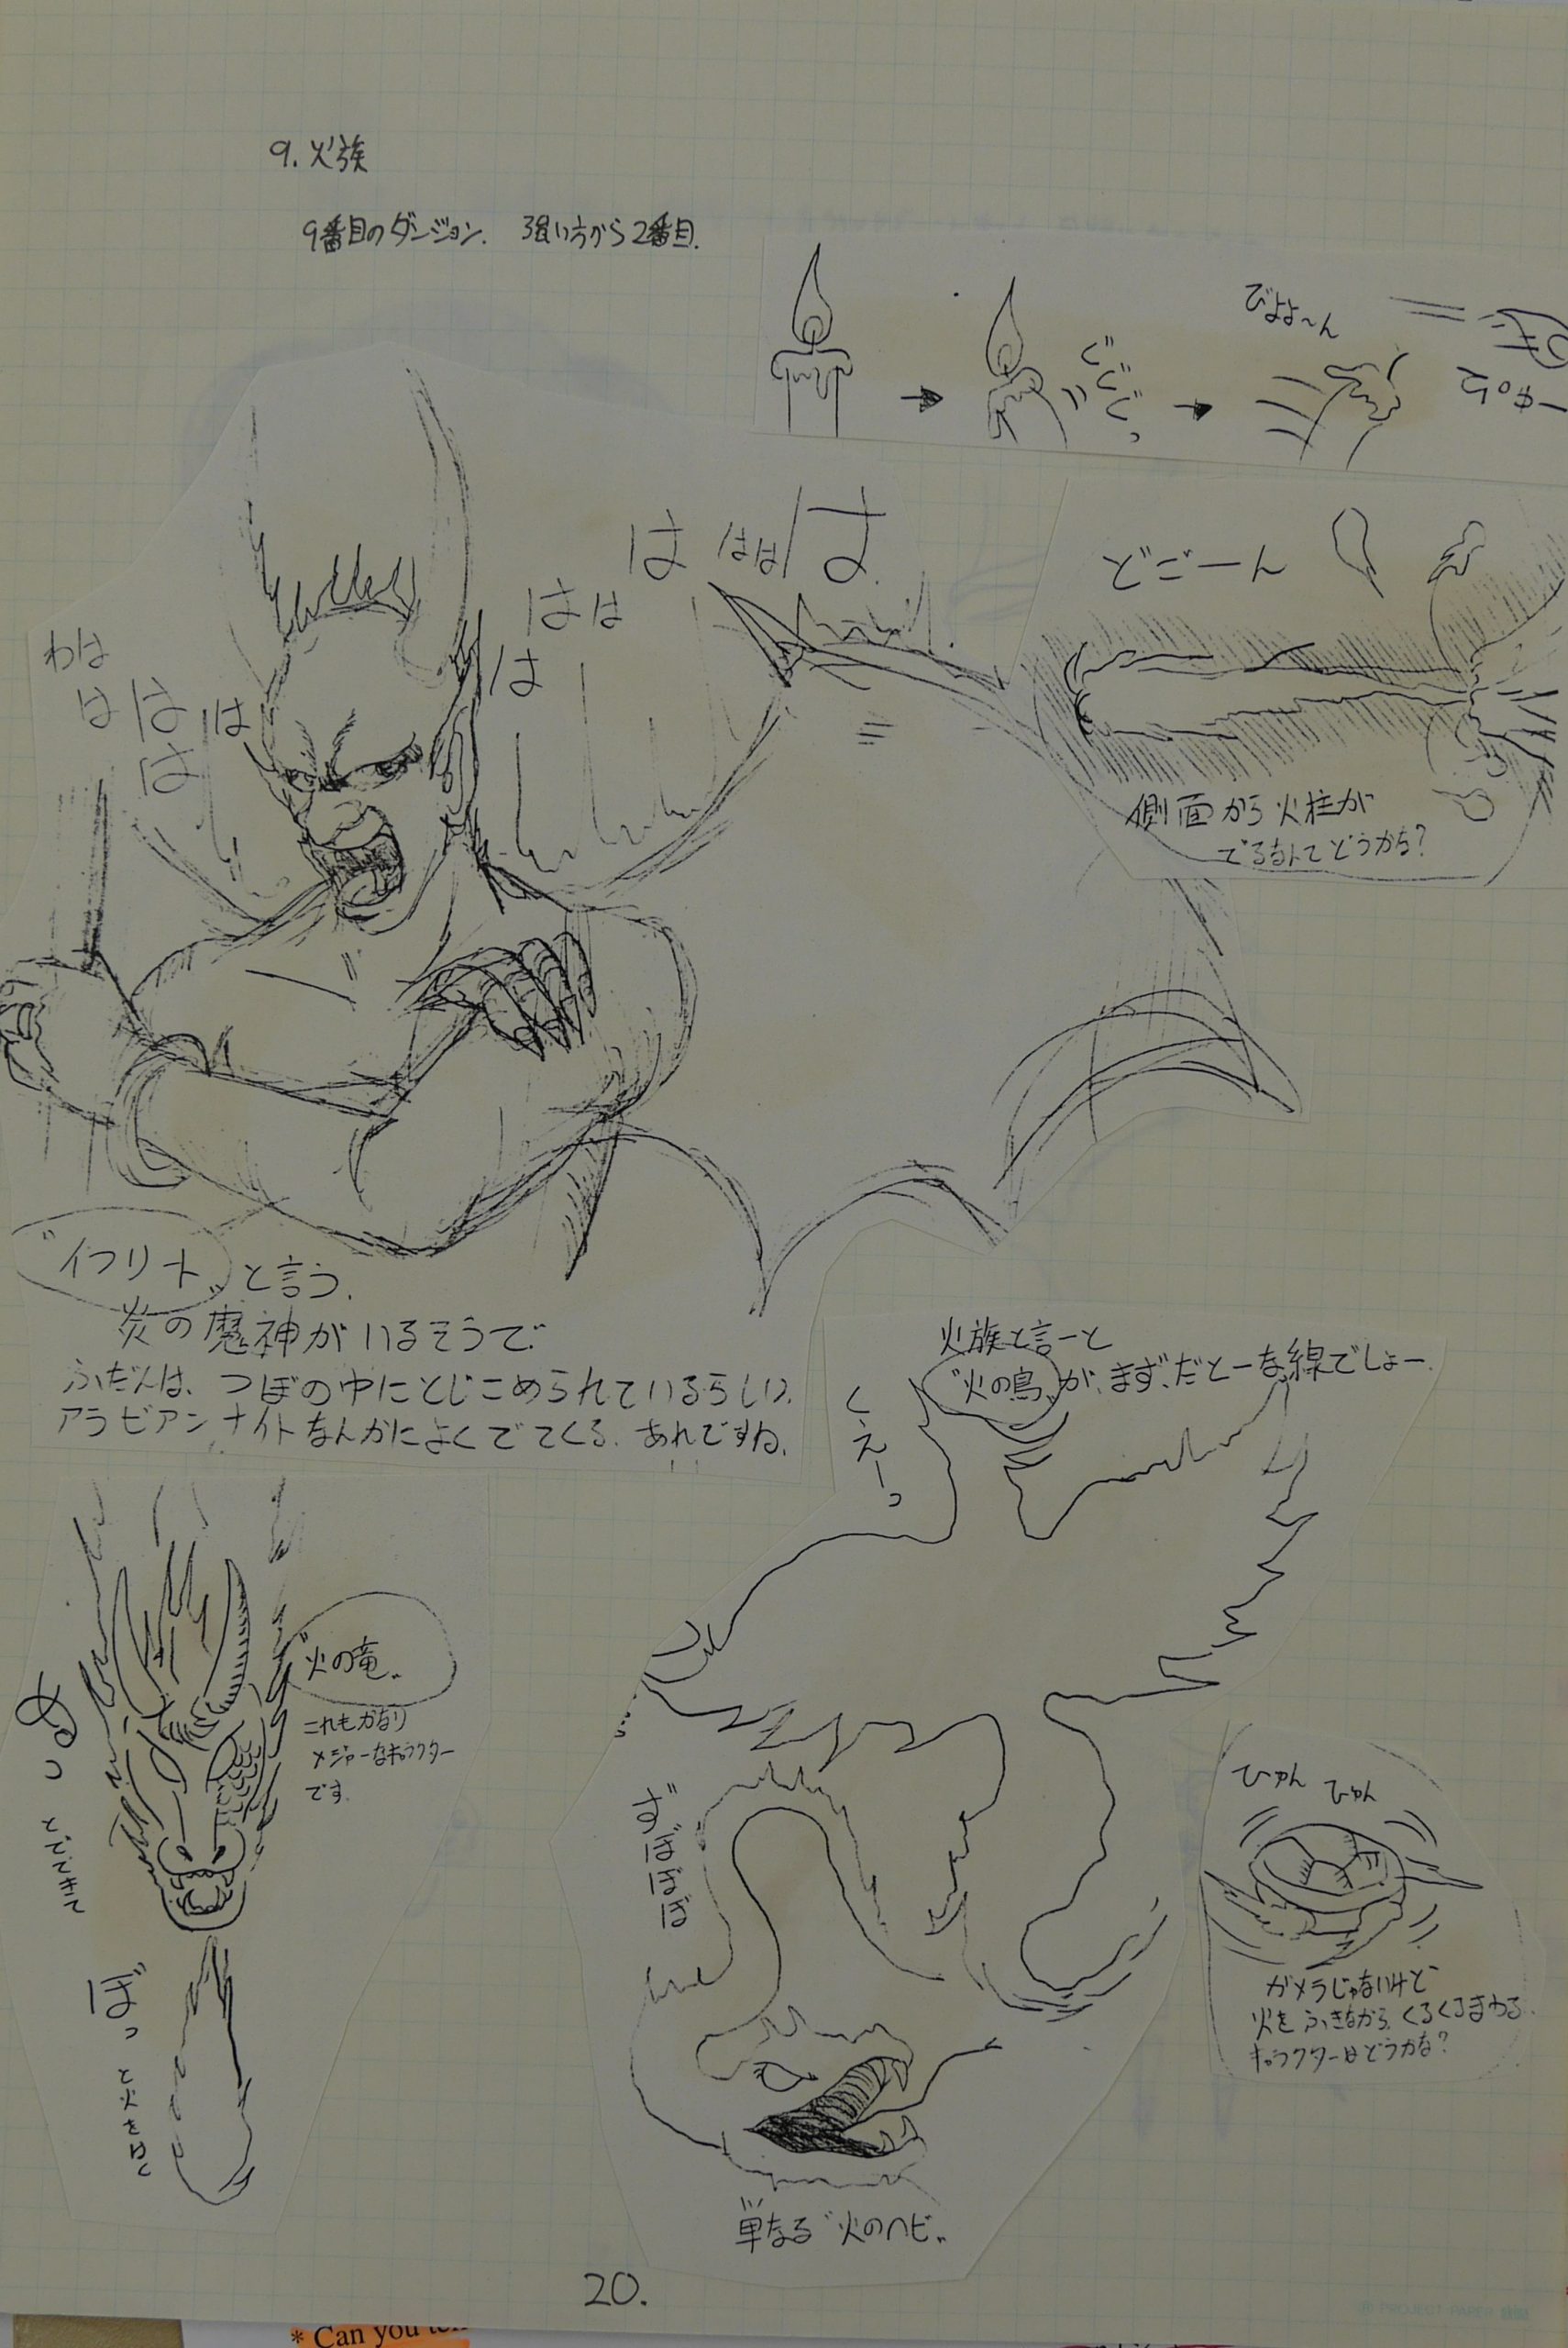 9. 火族
9番目のダンジョン. 強い方から2番目.
じじじっ
びよよ〜ん
どごーん
側面から火柱が
でるなんてどうかな?
わははははは
はははははははは
“イフリート„と言う.
炎の魔神がいるそうで
ふだんは、つぼの中にとじこめられているらしい.
アラビアンナイトなんかによくでてくる. あれですね.
火族と言ーと
“火の鳥„が、まず、だとーな線でしょー.
くえーっ
“火の竜„
これもかなり
メジャーなキャラクター
です.
とんできて
ぼっ と火をはく
ずばばばば
単なる“火のヘビ„
ひゅん ひゅん
ガメラじゃないけど
火をふきながら、くるくるまわる
キャラクターはどうかな?
20.
® PROJECT PAPER
* Can you